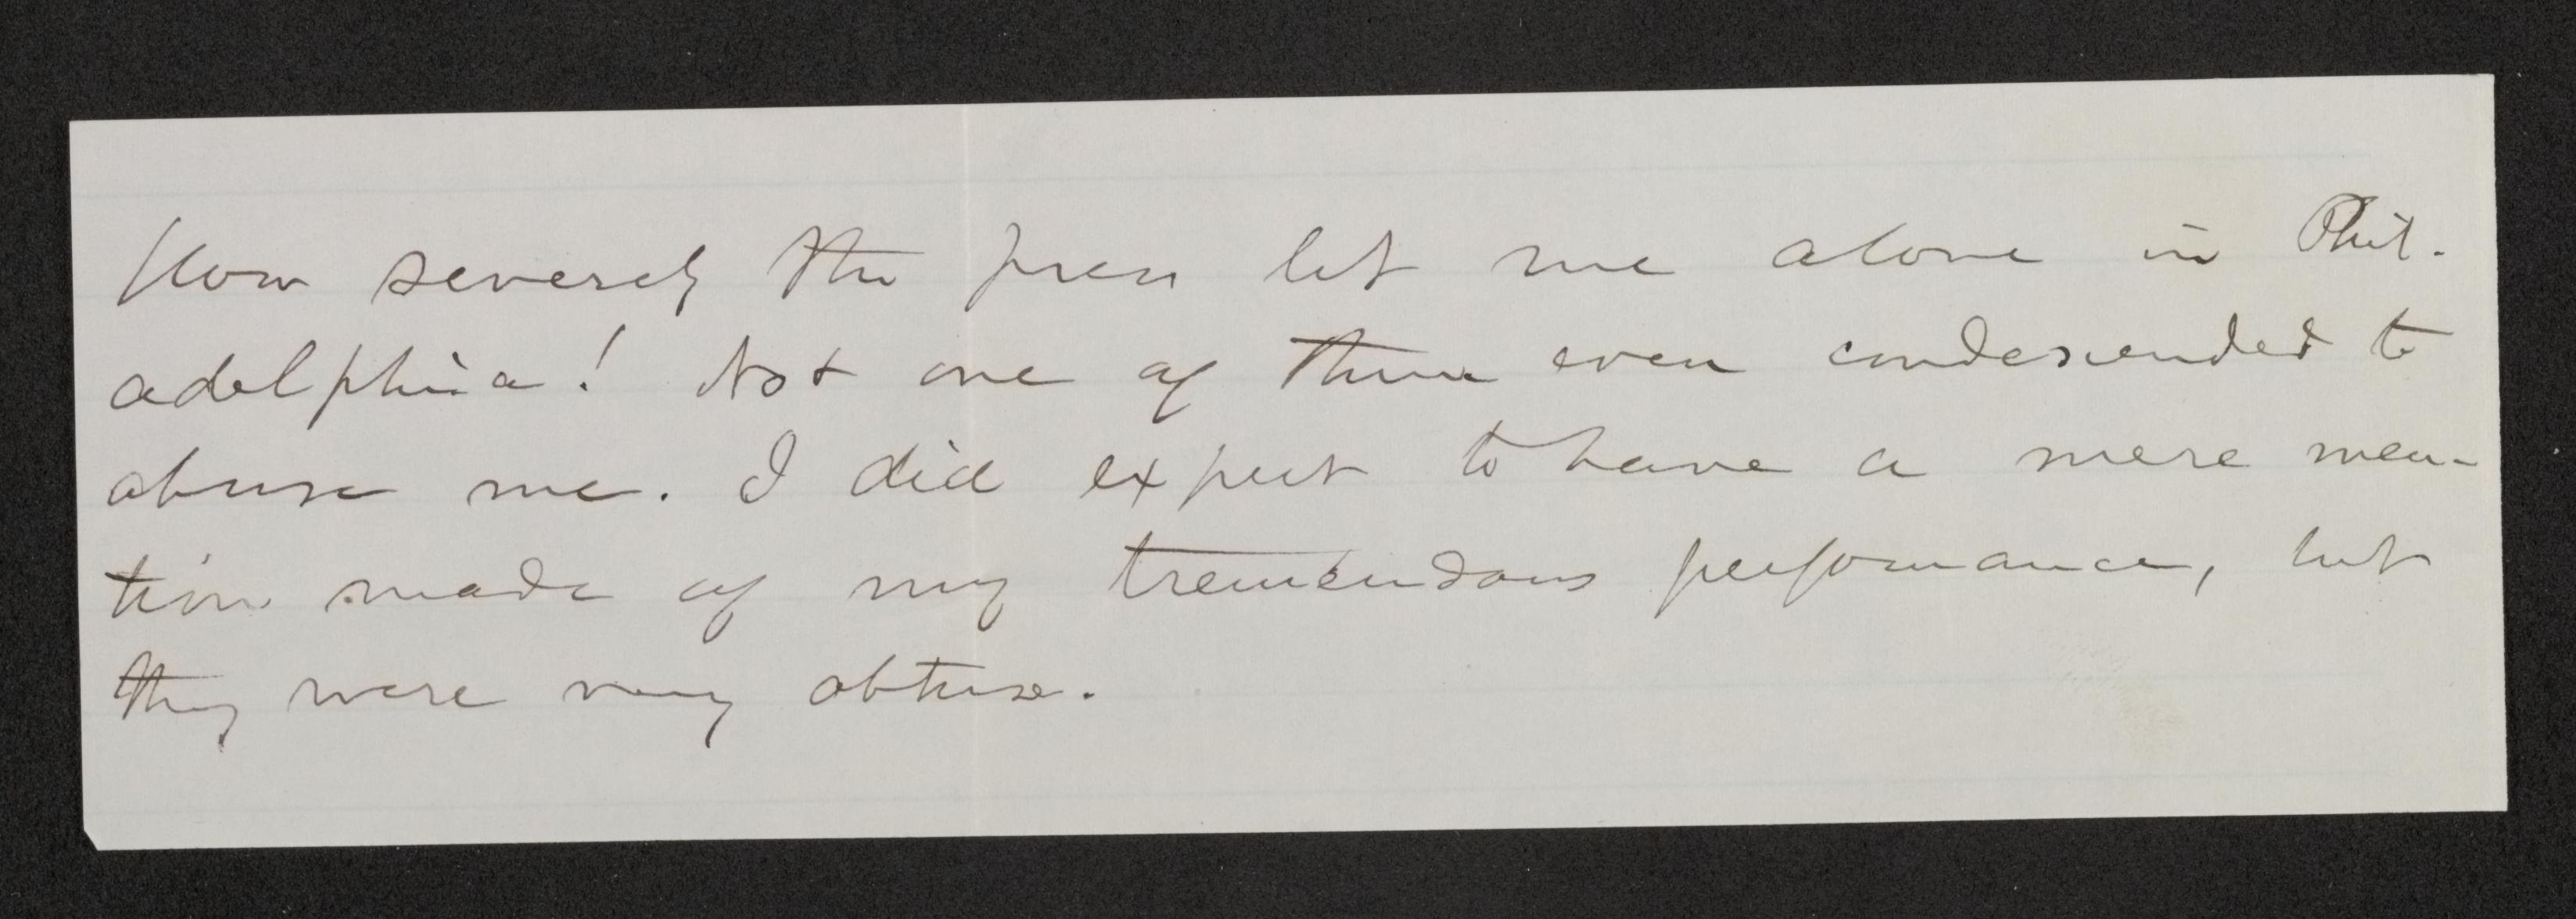 How severely the press let me alone in Phil-
adelphia! Not one of them even condescended to
abuse me. I did expect to have a mere men-
tion made of my tremendous performance, but
they were very obtuse.